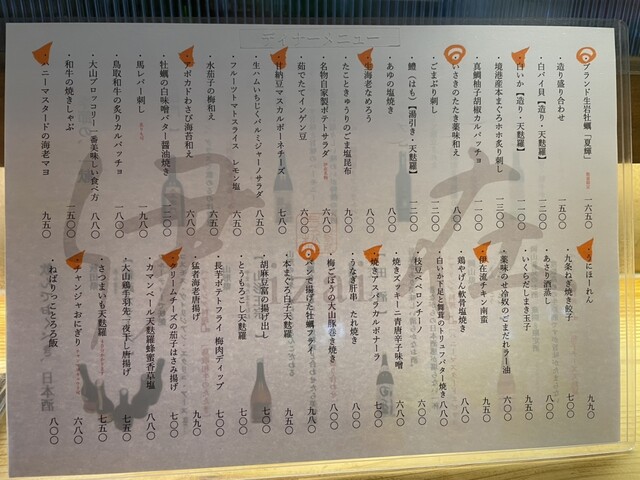 ディナーメニュー
・ブランド生岩牡蠣「夏輝」 一六五〇
・造り盛り合わせ 一五〇〇
・白バイ貝【造り・天麩羅】
・白いか【造り・天麩羅】 一二〇〇
・境港産本まぐろホホ炙り刺し 一三〇〇
・真鯛柚子胡椒カルパッチョ 一二〇〇
・いさきのたたき薬味和え 八〇〇
・ごまぶり刺し
・鱧(はも)【湯引き・天麩羅】 一二〇〇
・あゆの塩焼き 八〇〇
・生海老なめろう 八〇〇
・たこときゅうりのごま塩昆布 九〇〇
・名物自家製ポテトサラダ 六〇〇
・茹でたてインゲン豆 六〇〇
・甘納豆マスカルポーネチーズ 七八〇
・生ハムいちじくパルミジャーノサラダ 八五〇
・フルーツトマトスライス レモン塩 六五〇
・水茄子の梅和え 六五〇
・アボカドわさび海苔和え
・牡蠣の白味噌バター醤油焼き 一二〇〇
・馬レバー刺し 一九八〇
・鳥取和牛の炙りカルパッチョ 一八〇〇
・大山ブロッコリー一番美味しい食べ方 一八八〇
・和牛の焼きしゃぶ 一五〇〇
・ハニーマスタードの海老マヨ 九五〇
・うにほーれん 九九〇
・九条ねぎ焼き餃子 七〇〇
・あさり酒蒸し 八〇〇
・いくらだしまき玉子 九五〇
・薬味のせ冷奴のごまだれラー油 六〇〇
・伊在流チキン南蛮 九五〇
・鶏やげん軟骨塩焼き
・白いか下足と舞茸のトリュフバター焼き 八八〇
・枝豆ペペロンチーノ 六〇〇
・焼きズッキーニ青唐辛子味噌 六八〇
・焼きアスパラカルボナーラ 七〇〇
・うなぎ肝串 たれ焼き
・梅ごぼうの大山豚巻き焼き 八〇〇
・パン粉で揚げた牡蠣フライ 九八〇
・本まぐろ白子天麩羅 九五〇
・胡麻豆富の揚げ出し 七〇〇
・とうもろこし天麩羅 七〇〇
・長芋ポテトフライ 梅肉ディップ 七〇〇
・猛者海老唐揚げ 九九〇
・クリームチーズの茄子はさみ揚げ 七〇〇
・カマンベール天麩羅蜂蜜香草塩 八八〇
・大山鶏手羽先一夜干し唐揚げ 七五〇
・さつまいも天麩羅 七五〇
・チャンジャおにぎり 六八〇
・ねばりっことろろ飯 八〇〇
日本酒